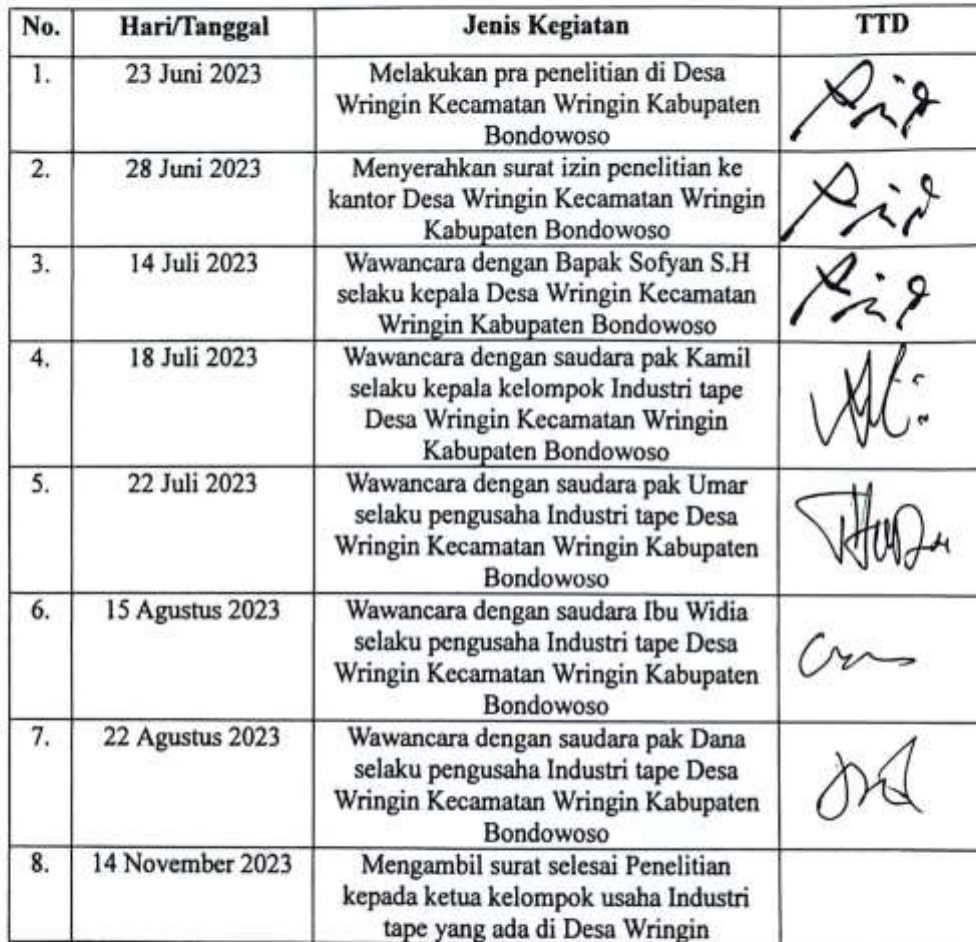 No. Hari/Tanggal Jenis Kegiatan TTD
1. 23 Juni 2023 Melakukan pra penelitian di Desa
Wringin Kecamatan Wringin Kabupaten
Bondowoso
2. 28 Juni 2023 Menyerahkan surat izin penelitian ke
kantor Desa Wringin Kecamatan Wringin
Kabupaten Bondowoso
3. 14 Juli 2023 Wawancara dengan Bapak Sofyan S.H
selaku kepala Desa Wringin Kecamatan
Wringin Kabupaten Bondowoso
4. 18 Juli 2023 Wawancara dengan saudara pak Kamil
selaku kepala kelompok Industri tape
Desa Wringin Kecamatan Wringin
Kabupaten Bondowoso
5. 22 Juli 2023 Wawancara dengan saudara pak Umar
selaku pengusaha Industri tape Desa
Wringin Kecamatan Wringin Kabupaten
Bondowoso
6. 15 Agustus 2023 Wawancara dengan saudara Ibu Widia
selaku pengusaha Industri tape Desa
Wringin Kecamatan Wringin Kabupaten
Bondowoso
7. 22 Agustus 2023 Wawancara dengan saudara pak Dana
selaku pengusaha Industri tape Desa
Wringin Kecamatan Wringin Kabupaten
Bondowoso
8. 14 November 2023 Mengambil surat selesai Penelitian
kepada ketua kelompok usaha Industri
tape yang ada di Desa Wringin